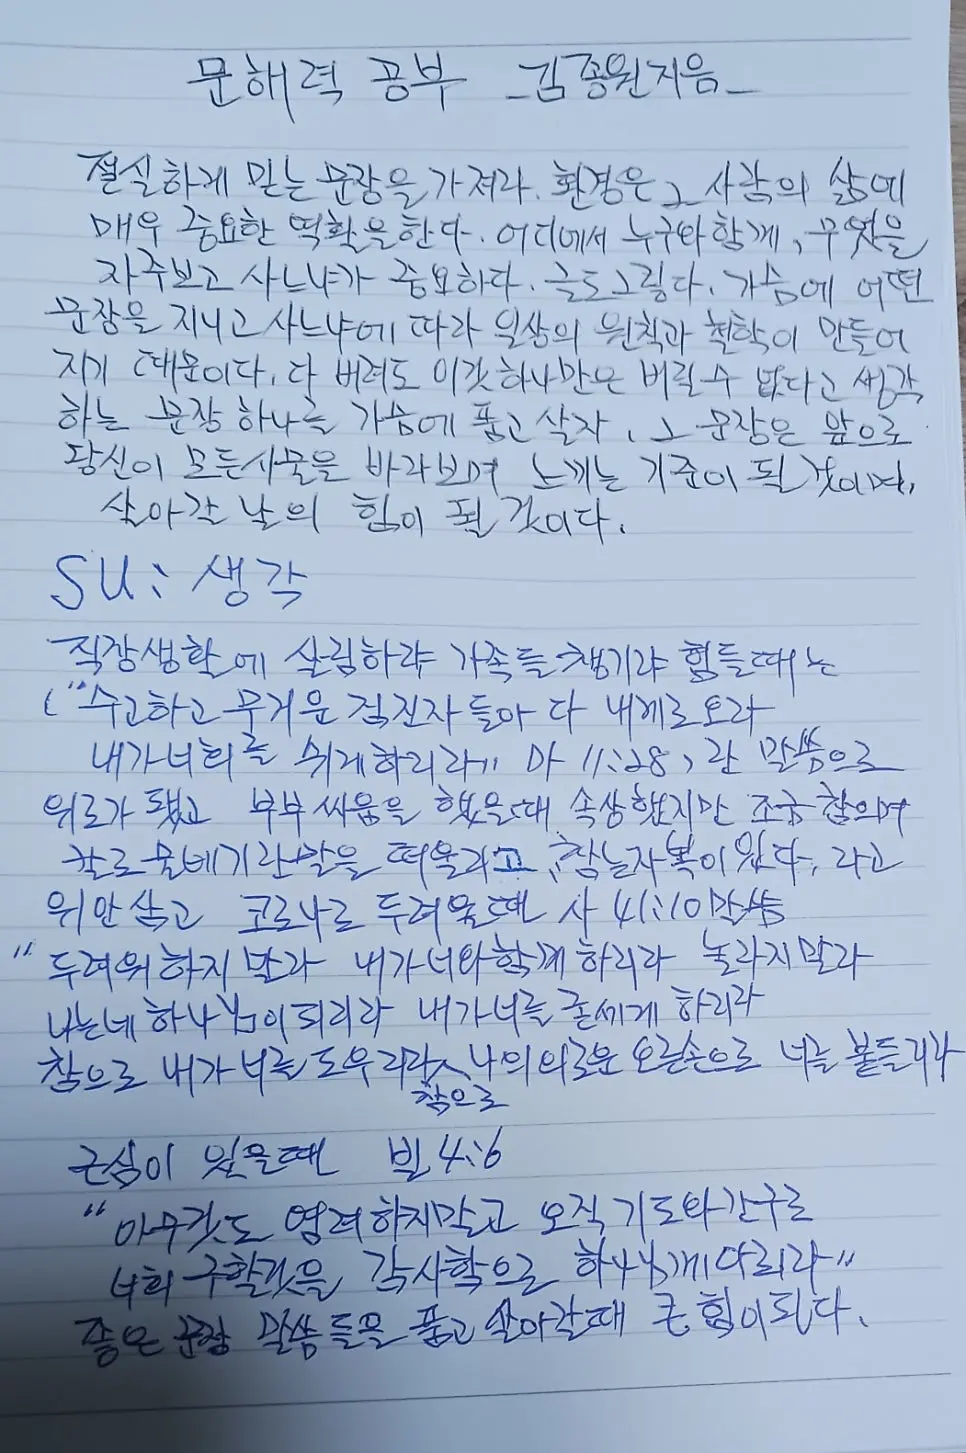 문해력 공부 _김종원지음_
절실하게 믿는 문장을 가져라. 환경은 그 사람의 삶에
매우 중요한 역할을 한다. 어디에서 누구와 함께, 무엇을
자주보고 사느냐가 중요하다. 글도 그렇다. 가슴에 어떤
문장을 지니고 사느냐에 따라 일상의 원칙과 철학이 만들어
지기 때문이다. 다 버려도 이것 하나만은 버릴 수 없다고 생각
하는 문장 하나를 가슴에 품고 살자. 그 문장은 앞으로
당신이 모든사물을 바라보며 느끼는 기준이 될 것이며,
살아갈 날의 힘이 될 것이다.
SU: 생각
직장생활에 살림하랴 가족들 챙기랴 힘들때는
("수고하고 무거운 짐진자들아 다 내게로 오라
내가 너희를 쉬게하리라" 마 11:28) 란 말씀으로
위로가 됐고 부부싸움을 했을때 속상했지만 조금 참으며
칼로 물베기란말을 떠올리고, 참는자 복이 있다, 라고
위안삼고 코로나로 두려울땐 사 41:10말씀
"두려워하지 말라 내가 너와함께 하리라 놀라지말라
나는네 하나님이 되리라 내가 너를 굳세게 하리라
참으로 내가 너를 도우리라 참으로 나의 의로운 오른손으로 너를 붙들리라
근심이 있을때 빌 4:6
"아무것도 염려하지말고 오직 기도와간구로
너희 구할것을 감사함으로 하나님께 아뢰라"
좋은 문장 말씀들을 품고 살아갈때 큰 힘이 된다.